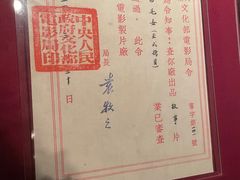 文化部電影局令
令知事：查你廠出品故事片
毛女
業已審查
通過。此令
電影製片廠
局長 袁牧之
中央人民
政府文化部
電影局印